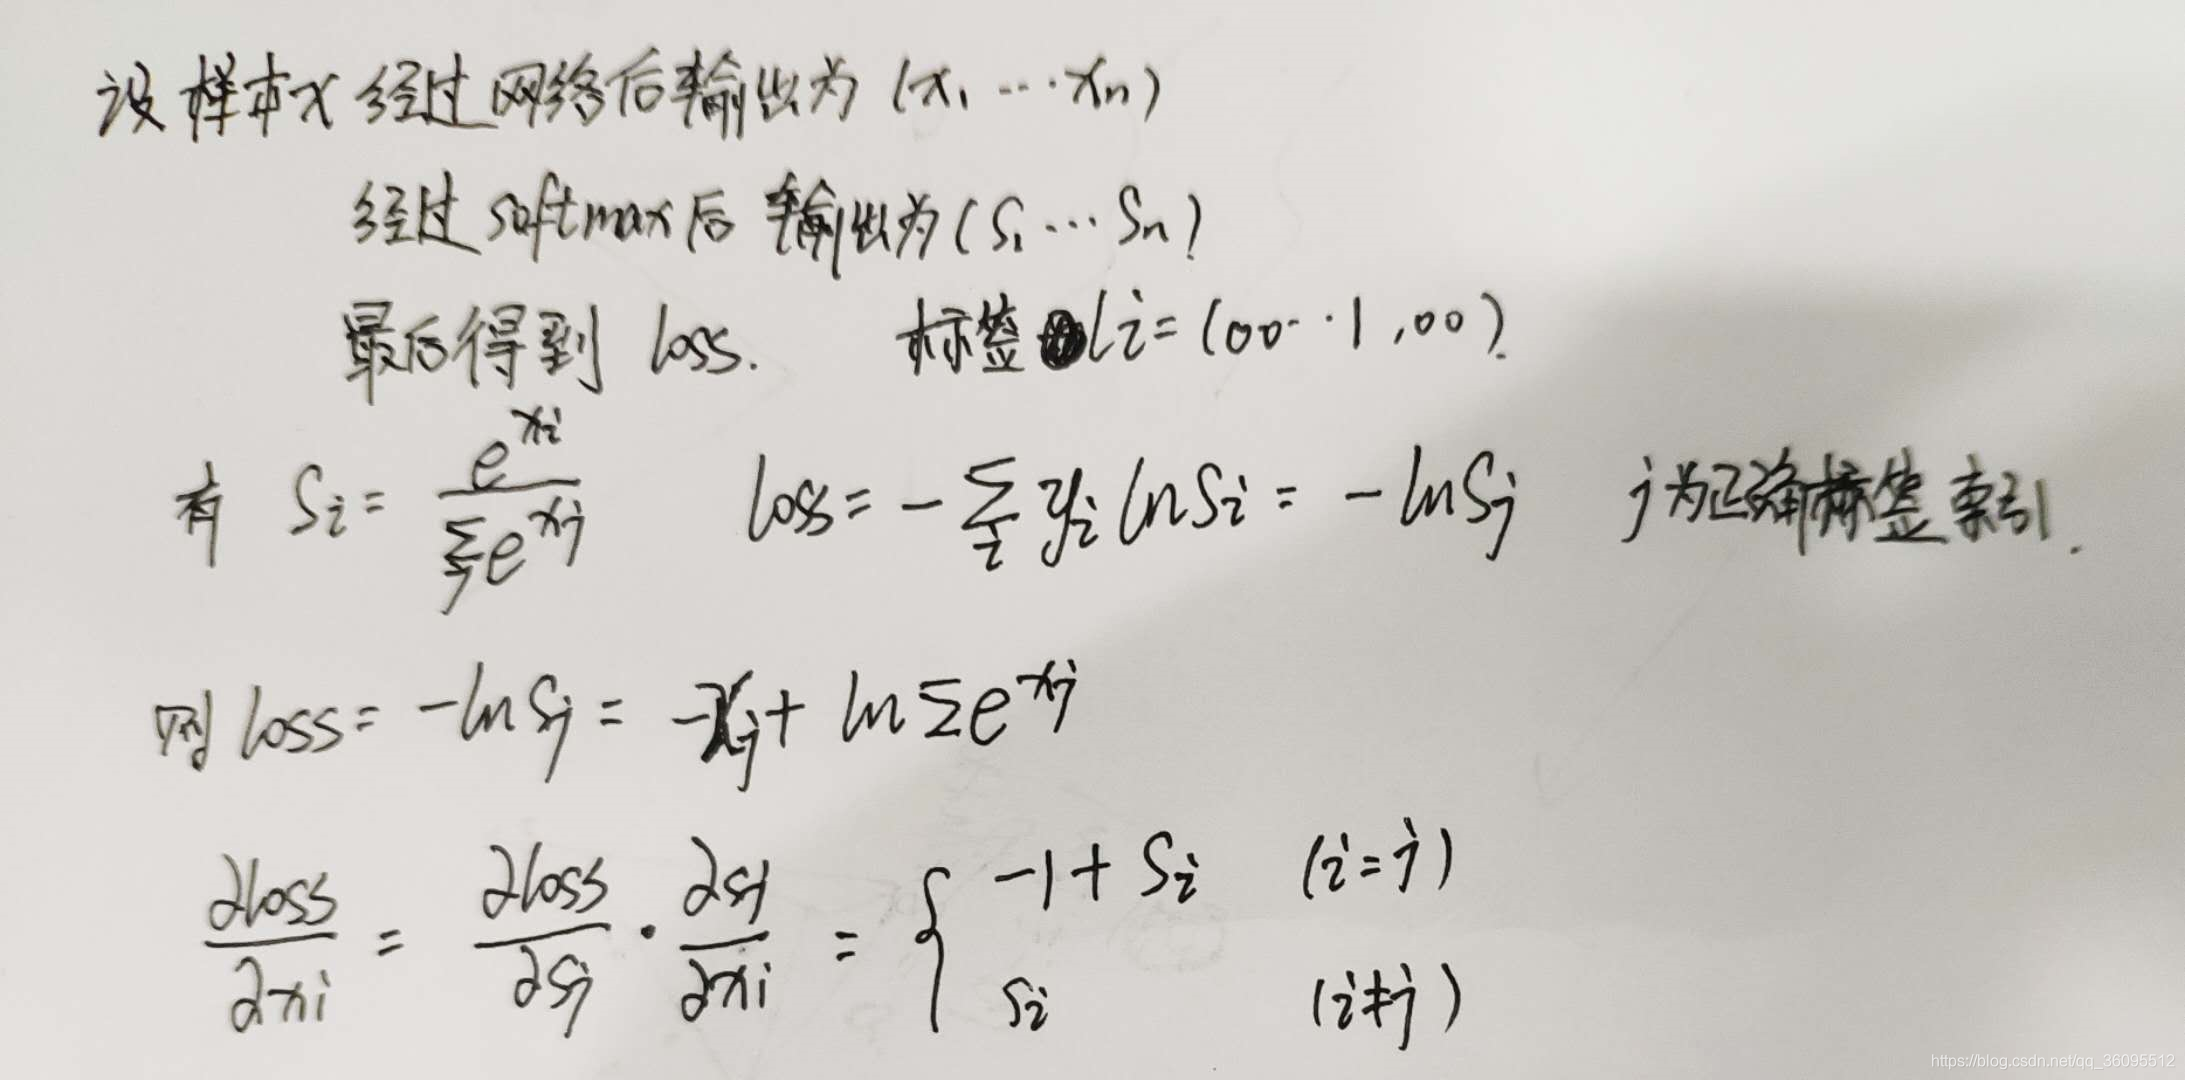 设样本x 经过网络后输出为 (x₁ ⋯ xₙ)
经过 softmax后 输出为 (S₁ ⋯ Sₙ)
最后得到 loss. 标签 Li = (00⋯1,00).
有 Si = e^{xi} / Σ_j e^{xj} loss = -Σ_i yi ln Si = -ln Sj j为正确标签索引.
则 loss = -ln Sj = -xj + ln Σe^{xj}
∂loss/∂xi = ∂loss/∂Sj · ∂Sj/∂xi = { -1 + Si (i=j)
Si (i≠j)
https://blog.csdn.net/qq_36095512